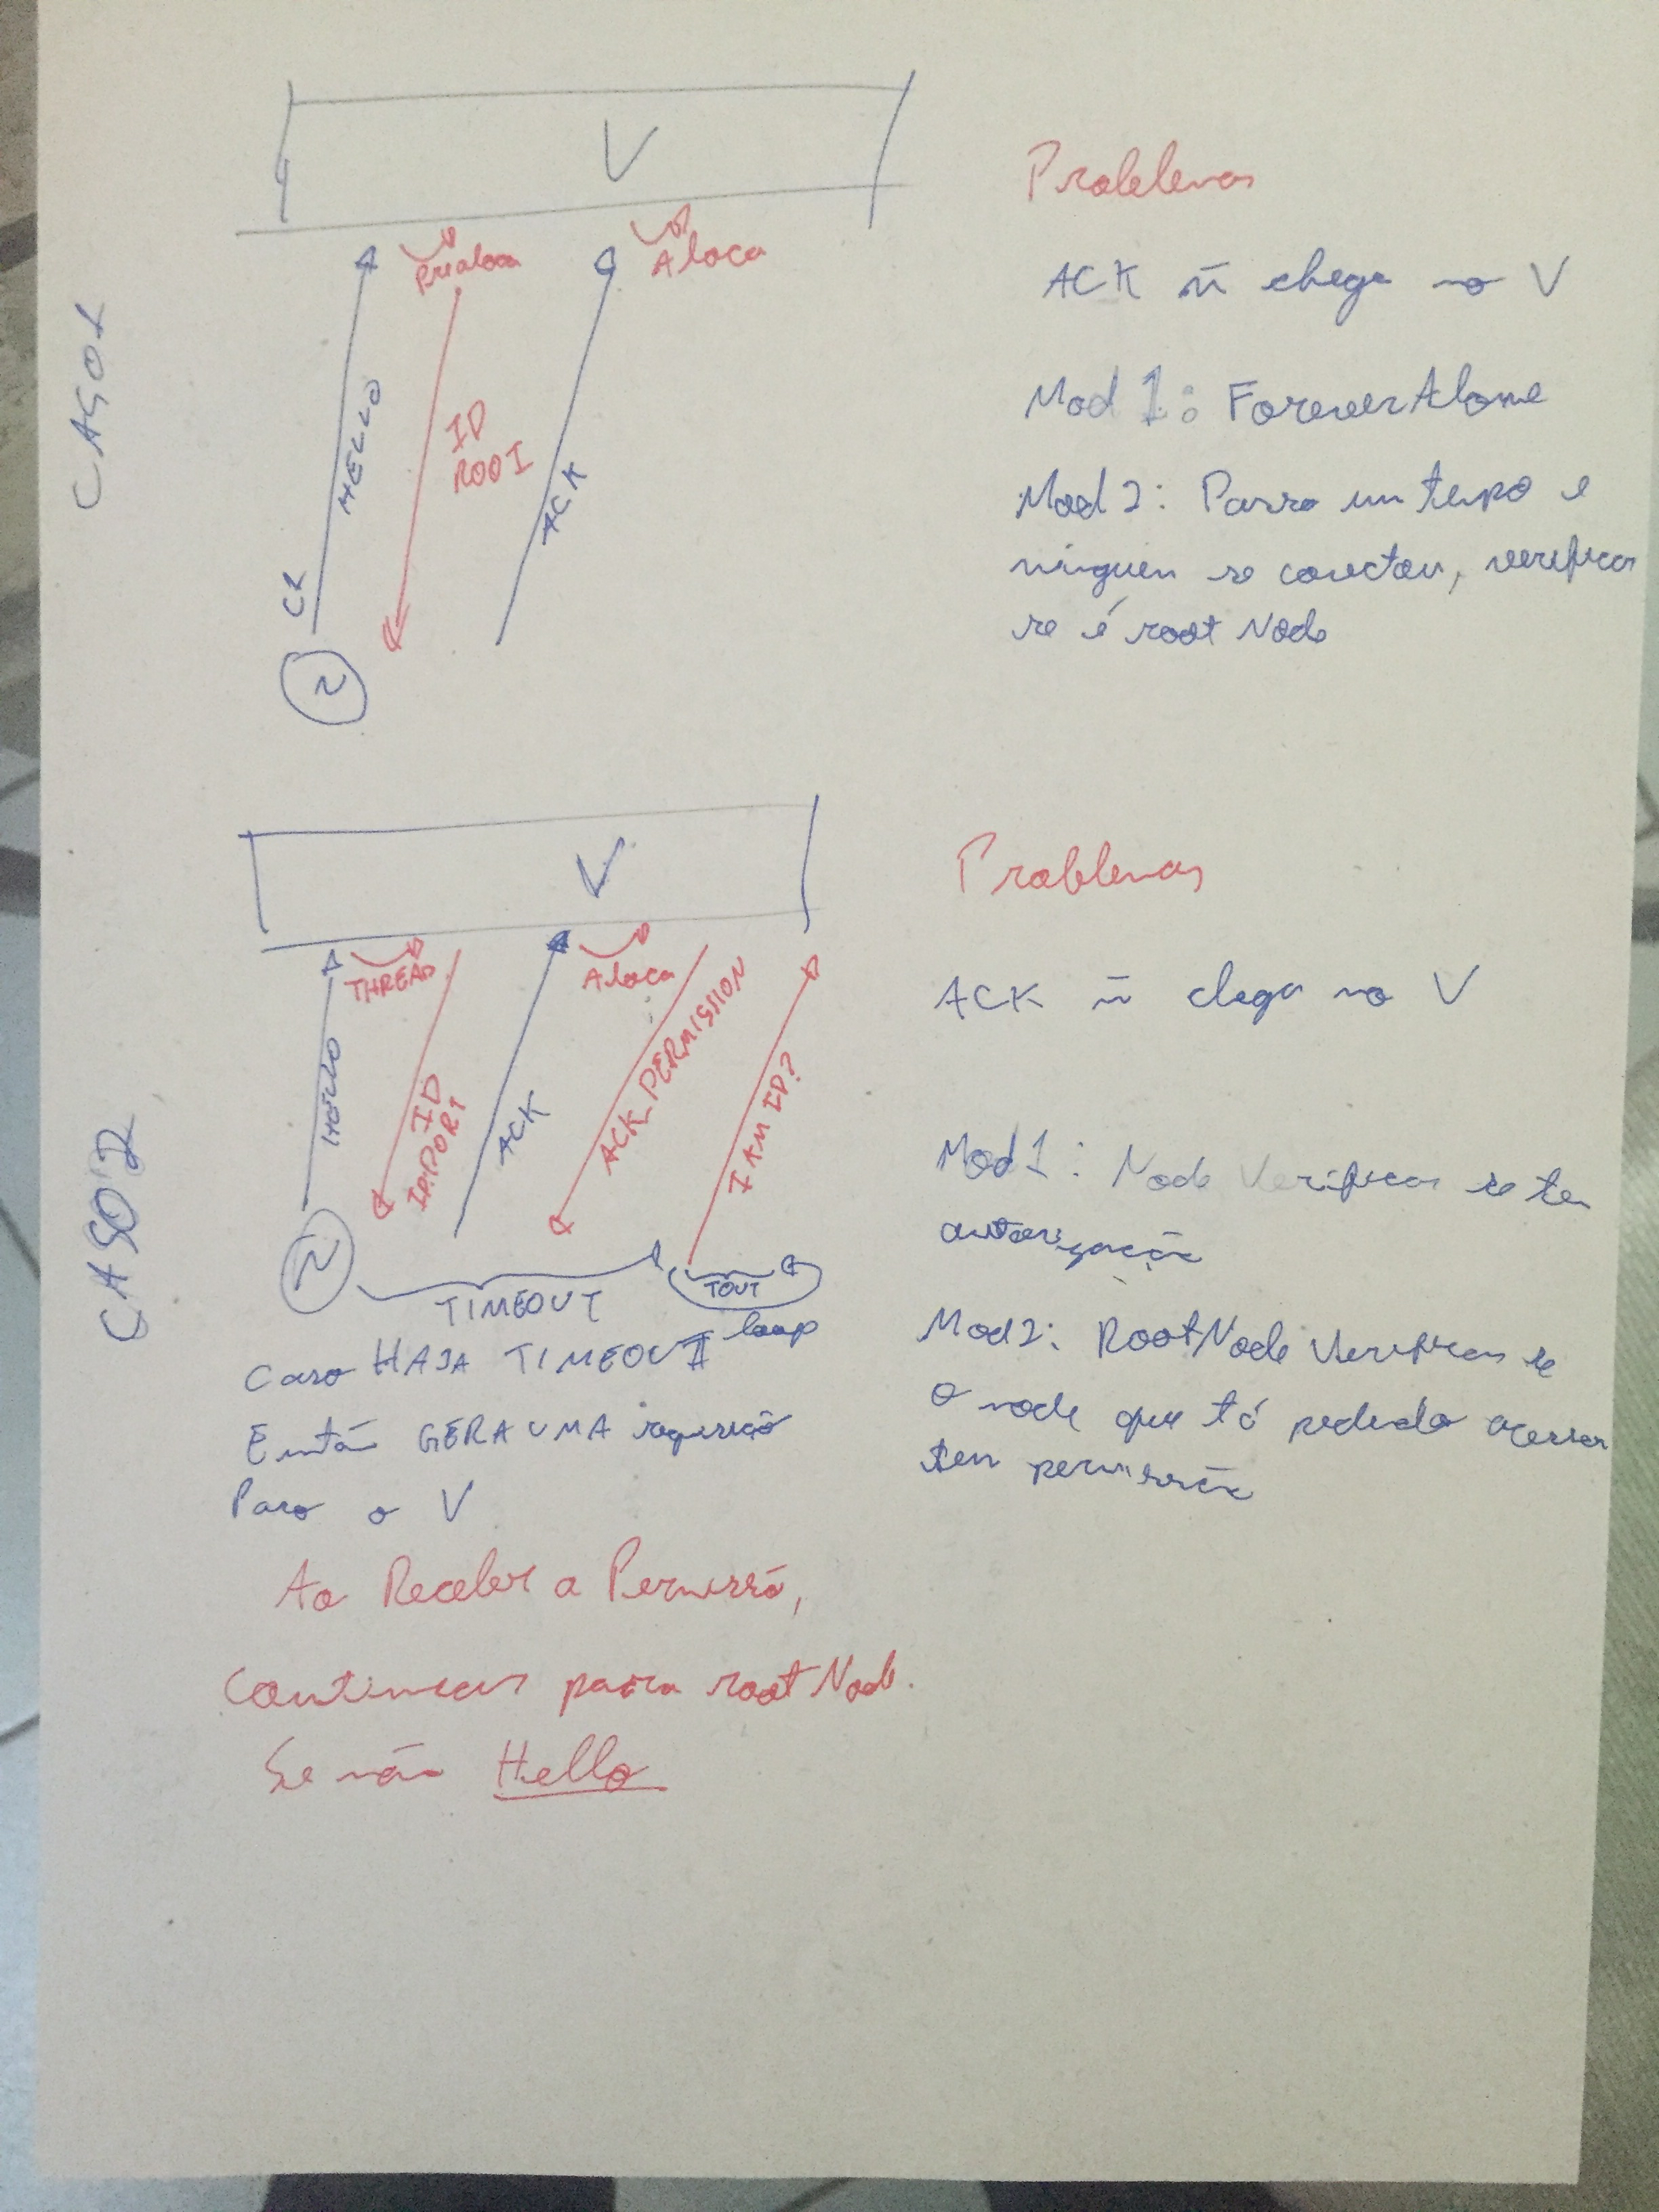 CASO1
V
Prealoca
Aloca
C1
HELLO
ID
ROOT
ACK
N
Problemas
ACK ñ chega no V
Mod 1: ForeverAlone
Mod 2: Passo um tempo e
ninguen se conectou, verificar
se é root Node
CASO2
V
THREAD
Aloca
HELLO
ID
IP:PORT
ACK
ACK_PERMISSION
I AM ID?
N
TIMEOUT
TOUT
loop
Caso HAJA TIMEOUT
Então GERA UMA requisição
Para o V
Ao Receber a Permissão,
Continuar para root Node.
Se não Hello
Problemas
ACK ñ chega no V
Mod 1: Node Verificar se tem
autorização
Mod2: RootNode Verificar se
o node que tá pedindo acessar
tem permissão